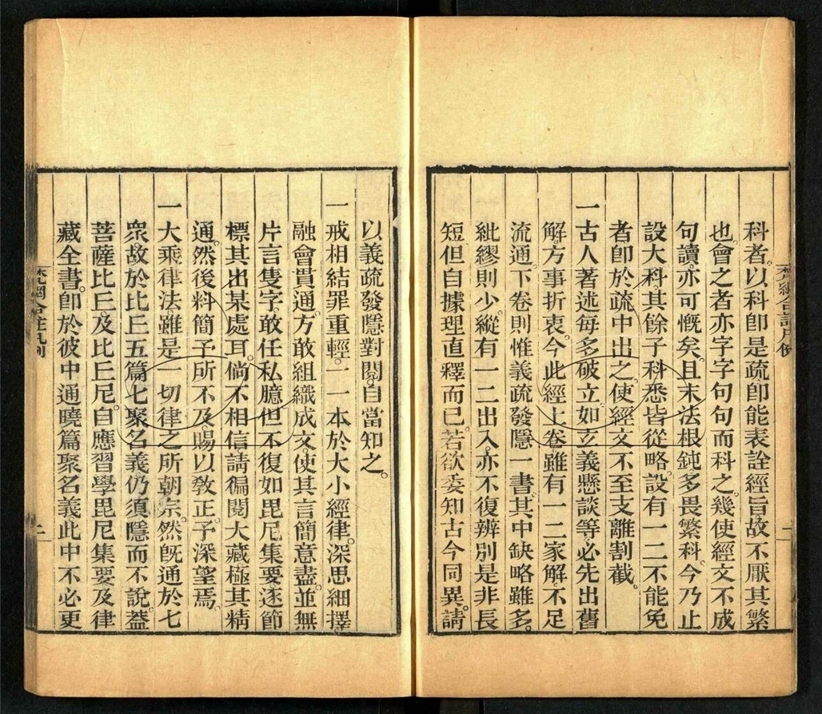 科者。以科卽是疏卽能表詮經旨故不厭其繁
也會之者亦字字句句而科之。幾使經文不成
句讀亦可慨矣。且末法根鈍多畏繁科。今乃止
設大科。其餘子科悉皆從略。設有一二不能免
者卽於疏中出之。使經文不至支離割截。
一古人著述每多破立如玄義懸談等必先出舊
解。方事折衷。今此經上卷雖有一二家解。不足
流通。下卷則惟義疏發隱一書。其中缺略雖多。
紕繆則少。縱有一二出入。亦不復辨別是非長
短。但自據理直釋而已。若欲委知古今同異。請
以義疏發隱對閱。自當知之。
一戒相結罪重輕。一本於大小經律。深思細擇
融會貫通。方敢組織成文。使其言簡意盡。並無
片言隻字。敢任私臆。但不復如毘尼集要逐節
標其出某處耳。倘不相信請徧閱大藏極其精
通。然後料簡予所不及賜以敎正。予深望焉。
一大乘律法雖是一切律之所朝宗。然旣通於七
衆。故於比丘五篇七聚名義仍須隱而不說。蓋
菩薩比丘及比丘尼。自應習學毘尼集要及律
藏全書。卽於彼中通曉篇聚名義。此中不必更
梵網合註凡例
二